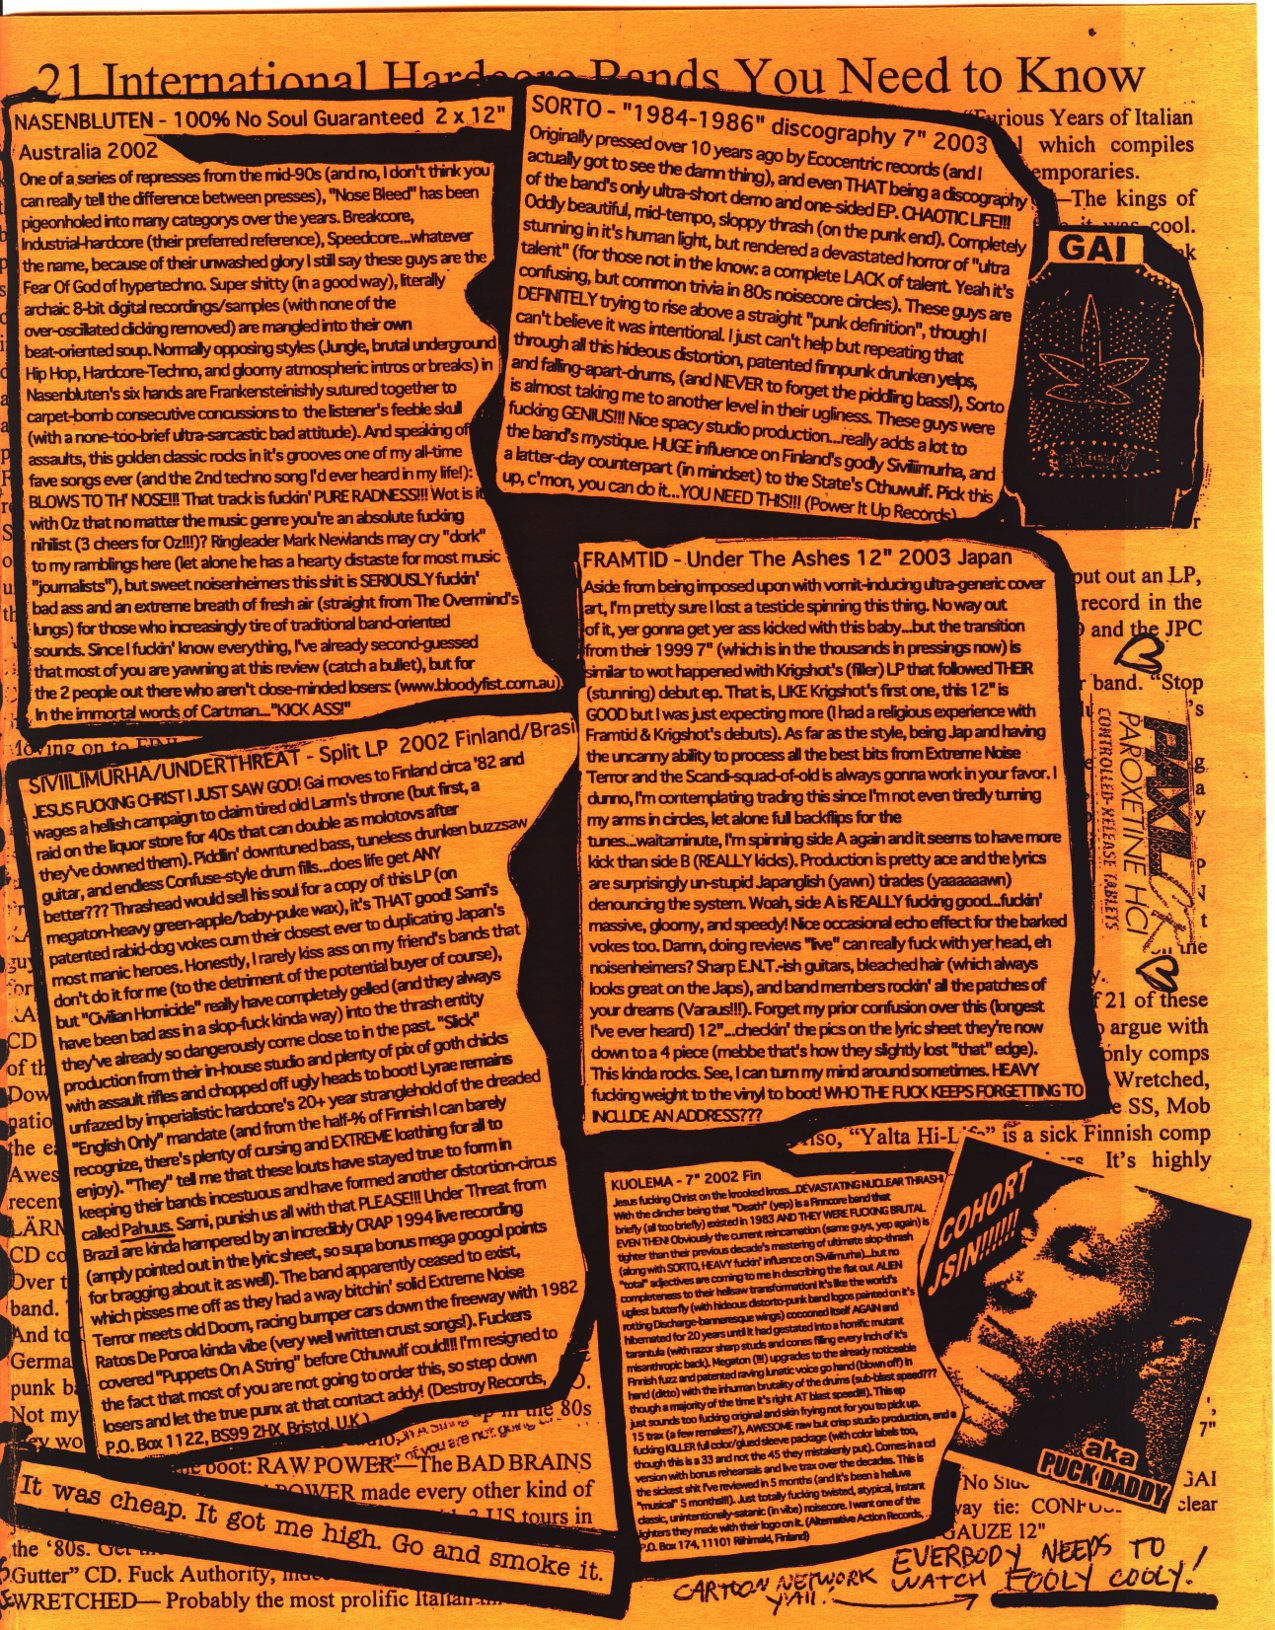 21 International Hardcore Bands You Need to Know
NASENBLUTEN - 100% No Soul Guaranteed 2 x 12"
Australia 2002
One of a series of represses from the mid-90s (and no, I don't think you
can really tell the difference between presses), "Nose Bleed" has been
pigeonholed into many categorys over the years. Breakcore,
Industrial-hardcore (their preferred reference), Speedcore...whatever
the name, because of their unwashed glory I still say these guys are the
Fear Of God of hypertechno. Super shitty (in a good way), literally
archaic 8-bit digital recordings/samples (with none of the
over-oscillated clicking removed) are mangled into their own
beat-oriented soup. Normally opposing styles (Jungle, brutal underground
Hip Hop, Hardcore-Techno, and gloomy atmospheric intros or breaks) in
Nasenbluten's six hands are Frankensteinishly sutured together to
carpet-bomb consecutive concussions to the listener's feeble skull
(with a none-too-brief ultra-sarcastic bad attitude). And speaking of
assaults, this golden classic rocks in it's grooves one of my all-time
fave songs ever (and the 2nd techno song I'd ever heard in my life!):
BLOWS TO TH' NOSE!!! That track is fuckin' PURE RADNESS!!! Wot is it
with Oz that no matter the music genre you're an absolute fucking
nihilist (3 cheers for Oz!!!)? Ringleader Mark Newlands may cry "dork"
to my ramblings here (let alone he has a hearty distaste for most music
"journalists"), but sweet noisenheimers this shit is SERIOUSLY fuckin'
bad ass and an extreme breath of fresh air (straight from The Overmind's
lungs) for those who increasingly tire of traditional band-oriented
sounds. Since I fuckin' know everything, I've already second-guessed
that most of you are yawning at this review (catch a bullet), but for
the 2 people out there who aren't close-minded losers: (www.bloodyfist.com.au)
In the immortal words of Cartman..."KICK ASS!"
SORTO - "1984-1986" discography 7" 2003
Originally pressed over 10 years ago by Ecocentric records (and I
actually got to see the damn thing), and even THAT being a discography
of the band's only ultra-short demo and one-sided EP. CHAOTIC LIFE!!!
Oddly beautiful, mid-tempo, sloppy thrash (on the punk end). Completely
stunning in it's human light, but rendered a devastated horror of "ultra
talent" (for those not in the know: a complete LACK of talent. Yeah it's
confusing, but common trivia in 80s noisecore circles). These guys are
DEFINITELY trying to rise above a straight "punk definition", though I
can't believe it was intentional. I just can't help but repeating that
through all this hideous distortion, patented finnpunk drunken yelps,
and falling-apart-drums, (and NEVER to forget the piddling bass!), Sorto
is almost taking me to another level in their ugliness. These guys were
fucking GENIUS!!! Nice spacy studio production...really adds a lot to
the band's mystique. HUGE influence on Finland's godly Siviilimurha, and
a latter-day counterpart (in mindset) to the State's Cthuwulf. Pick this
up, c'mon, you can do it...YOU NEED THIS!!! (Power It Up Records)
"Furious Years of Italian
which compiles
emporaries.
—The kings of
it was cool.
GAI
FRAMTID - Under The Ashes 12" 2003 Japan
Aside from being imposed upon with vomit-inducing ultra-generic cover
art, I'm pretty sure I lost a testicle spinning this thing. No way out
of it, yer gonna get yer ass kicked with this baby...but the transition
from their 1999 7" (which is in the thousands in pressings now) is
similar to wot happened with Krigshot's (filler) LP that followed THEIR
(stunning) debut ep. That is, LIKE Krigshot's first one, this 12" is
GOOD but I was just expecting more (I had a religious experience with
Framtid & Krigshot's debuts). As far as the style, being Jap and having
the uncanny ability to process all the best bits from Extreme Noise
Terror and the Scandi-squad-of-old is always gonna work in your favor. I
dunno, I'm contemplating trading this since I'm not even tiredly turning
my arms in circles, let alone full backflips for the
tunes...waitaminute, I'm spinning side A again and it seems to have more
kick than side B (REALLY kicks). Production is pretty ace and the lyrics
are surprisingly un-stupid Japanglish (yawn) tirades (yaaaaaawn)
denouncing the system. Woah, side A is REALLY fucking good...fuckin'
massive, gloomy, and speedy! Nice occasional echo effect for the barked
vokes too. Damn, doing reviews "live" can really fuck with yer head, eh
noisenheimers? Sharp E.N.T.-ish guitars, bleached hair (which always
looks great on the Japs), and band members rockin' all the patches of
your dreams (Varaus!!!). Forget my prior confusion over this (longest
I've ever heard) 12"...checkin' the pics on the lyric sheet they're now
down to a 4 piece (mebbe that's how they slightly lost "that" edge).
This kinda rocks. See, I can turn my mind around sometimes. HEAVY
fucking weight to the vinyl to boot! WHO THE FUCK KEEPS FORGETTING TO
INCLUDE AN ADDRESS???
put out an LP,
record in the
and the JPC
band. "Stop
PAXIL CR
PAROXETINE HCl
CONTROLLED-RELEASE TABLETS
21 of these
argue with
only comps
Wretched,
SS, Mob
Also, "Yalta Hi-Life" is a sick Finnish comp
It's highly
Moving on to
SIVIILIMURHA/UNDERTHREAT - Split LP 2002 Finland/Brasil
JESUS FUCKING CHRIST I JUST SAW GOD! Gai moves to Finland circa '82 and
wages a hellish campaign to claim tired old Larm's throne (but first, a
raid on the liquor store for 40s that can double as molotovs after
they've downed them). Piddlin' downtuned bass, tuneless drunken buzzsaw
guitar, and endless Confuse-style drum fills...does life get ANY
better??? Thrashead would sell his soul for a copy of this LP (on
megaton-heavy green-apple/baby-puke wax), it's THAT good! Sami's
patented rabid-dog vokes cum their closest ever to duplicating Japan's
most manic heroes. Honestly, I rarely kiss ass on my friend's bands that
don't do it for me (to the detriment of the potential buyer of course),
but "Civilian Homicide" really have completely gelled (and they always
have been bad ass in a slop-fuck kinda way) into the thrash entity
they've already so dangerously come close to in the past. "Slick"
production from their in-house studio and plenty of pix of goth chicks
with assault rifles and chopped off ugly heads to boot! Lyrae remains
unfazed by imperialistic hardcore's 20+ year stranglehold of the dreaded
"English Only" mandate (and from the half-% of Finnish I can barely
recognize, there's plenty of cursing and EXTREME loathing for all to
enjoy). "They" tell me that these louts have stayed true to form in
keeping their bands incestuous and have formed another distortion-circus
called Pahuus. Sami, punish us all with that PLEASE!!! Under Threat from
Brazil are kinda hampered by an incredibly CRAP 1994 live recording
(amply pointed out in the lyric sheet, so supa bonus mega googol points
for bragging about it as well). The band apparently ceased to exist,
which pisses me off as they had a way bitchin' solid Extreme Noise
Terror meets old Doom, racing bumper cars down the freeway with 1982
Ratos De Poroa kinda vibe (very well written crust songs!). Fuckers
covered "Puppets On A String" before Cthuwulf could!!! I'm resigned to
the fact that most of you are not going to order this, so step down
losers and let the true punx at that contact addy! (Destroy Records,
P.O. Box 1122, BS99 2HX, Bristol, U.K.)
KUOLEMA - 7" 2002 Fin
Jesus fucking Christ on the krooked kross...DEVASTATING NUCLEAR THRASH!
With the clincher being that "Death" (yep) is a Finncore band that
briefly (all too briefly) existed in 1983 AND THEY WERE FUCKING BRUTAL
EVEN THEN! Obviously the current reincarnation (same guys, yep again) is
tighter than their previous decade's mastering of ultimate slop-thrash
(along with SORTO, HEAVY fuckin' influence on Siviilimurha)...but no
"total" adjectives are coming to me in describing the flat out ALIEN
completeness to their hellsaw transformation! It's like the world's
ugliest butterfly (with hideous distorto-punk band logos painted on it's
rotting Discharge-banneresque wings) cocooned itself AGAIN and
hibernated for 20 years until it had gestated into a horrific mutant
tarantula (with razor sharp studs and cones filling every inch of it's
misanthropic back). Megaton (!!!) upgrades to the already noticeable
Finnish fuzz and patented raving lunatic voice go hand (blown off) in
hand (ditto) with the inhuman brutality of the drums (sub-blast speed???
though a majority of the time it's right AT blast speed!!!). This ep
just sounds too fucking original and skin frying not for you to pick up.
15 trax (a few remakes?), AWESOME raw but crisp studio production, and a
fucking KILLER full color/glued sleeve package (with color labels too,
though this is a 33 and not the 45 they mistakenly put). Comes in a cd
version with bonus rehearsals and live trax over the decades. This is
the sickest shit I've reviewed in 5 months (and it's been a helluva
"musical" 5 months!!!). Just totally fucking twisted, atypical, instant
classic, unintentionally-satanic (in vibe) noisecore. I want one of the
lighters they made with their logo on it. (Alternative Action Records,
P.O. Box 174, 11101 Riihimaki, Finland)
COHORT
JSIN!!!!!!
aka
PUCK DADDY
in the 80s
of you are not going
boot: RAW POWER—The BAD BRAINS
POWER made every other kind of
US tours in
the '80s. Get
Gutter" CD. Fuck Authority,
WRETCHED— Probably the most prolific Italian
It was cheap. It got me high. Go and smoke it.
7"
"No Side
GAI
way tie: CONFUSE
clear
GAUZE 12"
CARTOON NETWORK
Y'All!
EVERBODY NEEDS TO
WATCH FOOLY COOLY!